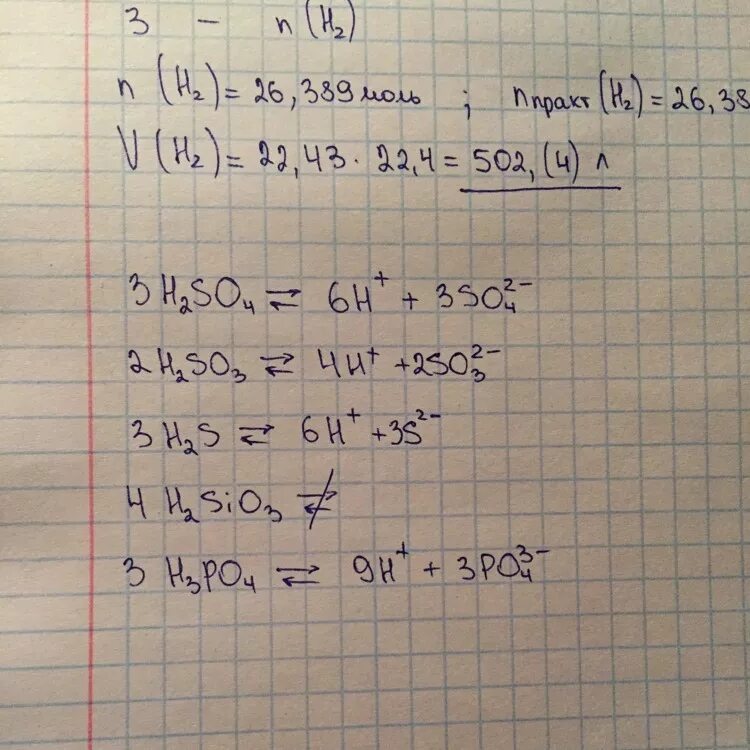 3 — n(H₂)
n(H₂) = 26,389 моль ; nпракт(H₂) = 26,38
V(H₂) = 22,43 · 22,4 = 502,(4) л
3H₂SO₄ ⇄ 6H⁺ + 3SO₄²⁻
2H₂SO₃ ⇄ 4H⁺ + 2SO₃²⁻
3H₂S ⇄ 6H⁺ + 3S²⁻
4H₂SiO₃ ⇄̸
3H₃PO₄ ⇄ 9H⁺ + 3PO₄³⁻